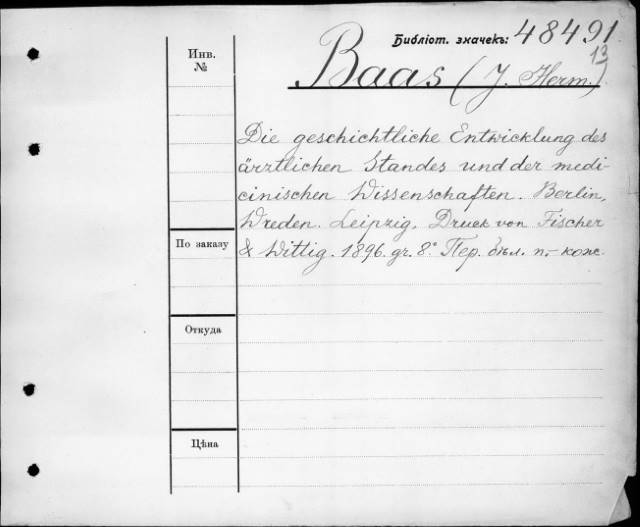 Библіот. значекъ: 48491
13
Baas (J. Herm.)
Инв.
№
Die geschichtliche Entwicklung des
ärztlichen Standes und der medi-
cinischen Wissenschaften. Berlin,
Wreden. Leipzig. Druck von Fischer
& Wittig. 1896. gr. 8° Пер. бѣл. п.-кож.
По заказу
Откуда
Цѣна